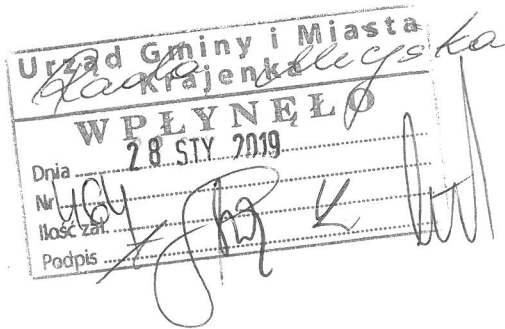 Urząd Gminy i Miasta
Krajenka
Rada Miejska
WPŁYNĘŁO
Dnia 28 STY 2019
Nr 464
Ilość zał.
Podpis